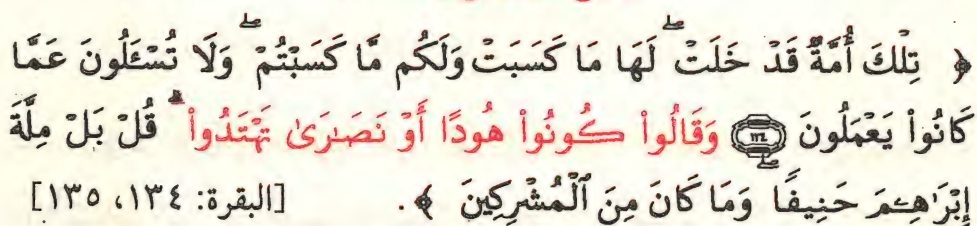 ﴿ تِلْكَ أُمَّةٌ قَدْ خَلَتْ ۖ لَهَا مَا كَسَبَتْ وَلَكُم مَّا كَسَبْتُمْ ۖ وَلَا تُسْـَٔلُونَ عَمَّا
كَانُوا۟ يَعْمَلُونَ ۝١٣٤ وَقَالُوا۟ كُونُوا۟ هُودًا أَوْ نَصَـٰرَىٰ تَهْتَدُوا۟ ۗ قُلْ بَلْ مِلَّةَ
إِبْرَٰهِـۧمَ حَنِيفًا وَمَا كَانَ مِنَ ٱلْمُشْرِكِينَ ﴾. [البقرة: ١٣٤، ١٣٥]